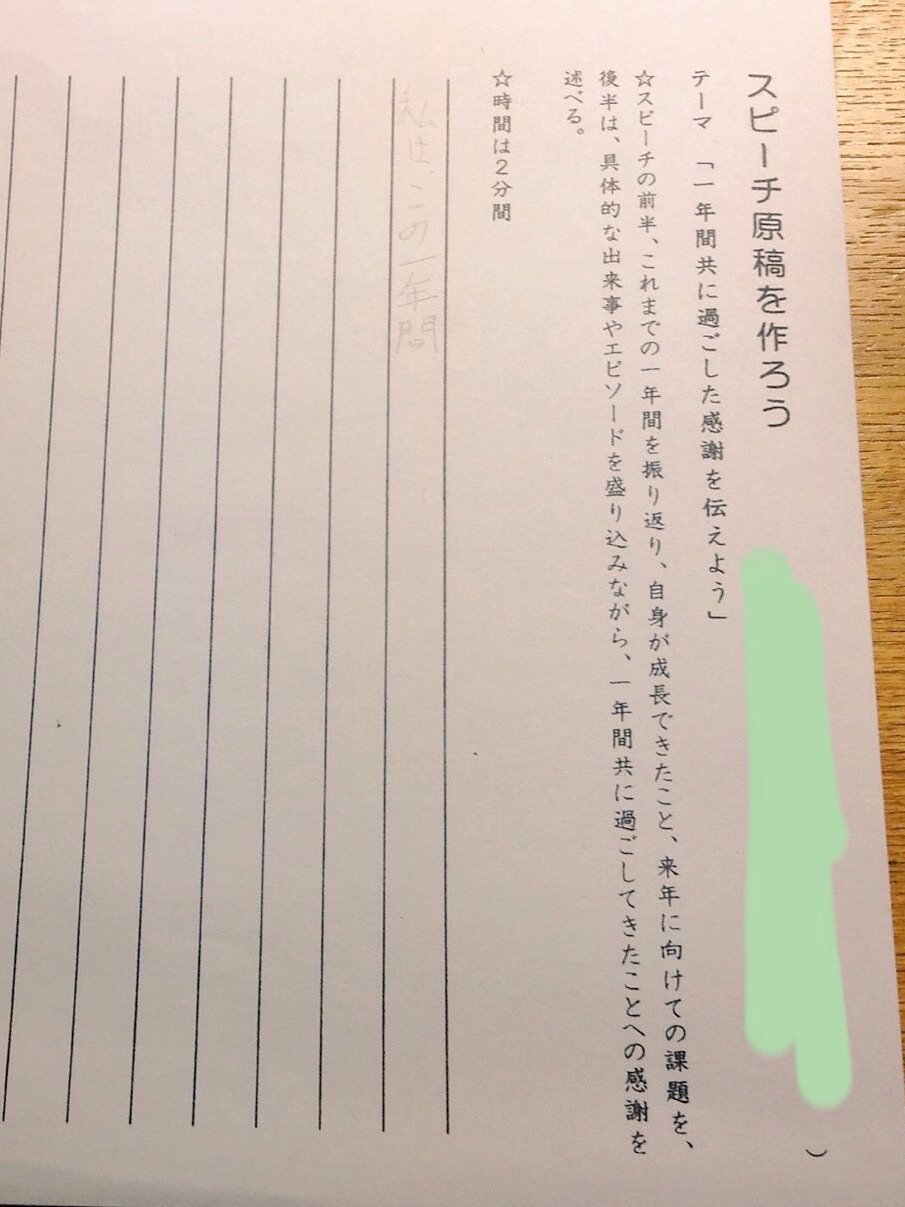 スピーチ原稿を作ろう
）
テーマ 「一年間共に過ごした感謝を伝えよう」
☆スピーチの前半、これまでの一年間を振り返り、自身が成長できたこと、来年に向けての課題を、
後半は、具体的な出来事やエピソードを盛り込みながら、一年間共に過ごしてきたことへの感謝を
述べる。
☆時間は２分間
私は、この一年間